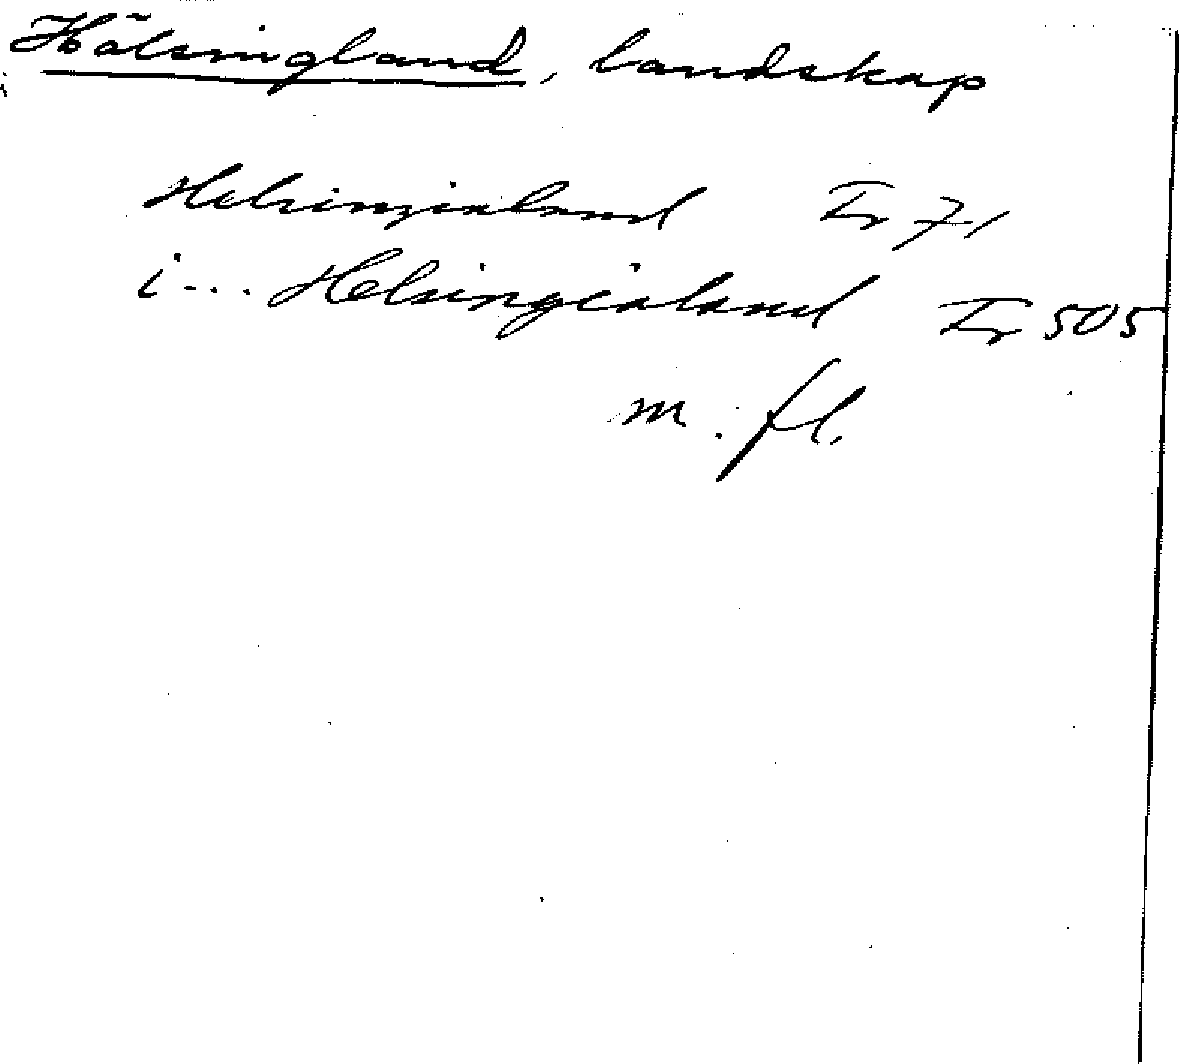 Hälsingland, landskap
Helsingialand Tr 71
i... Helsingialand Tr 505
m. fl.